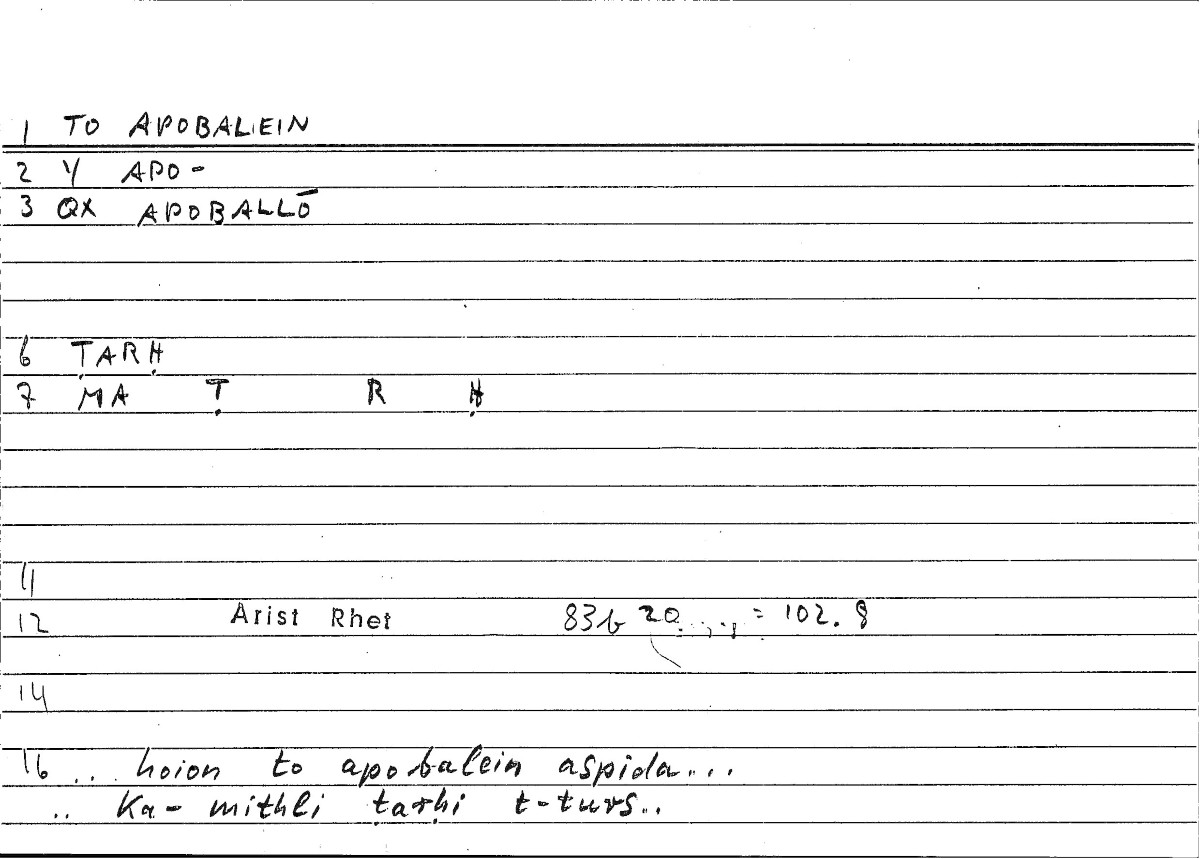 1 TO APOBALEIN
2 Y APO-
3 QX APOBALLŌ
6 ṬARḤ
7 MA Ṭ R Ḥ
11
12 Arist Rhet 83b 20 = 102.8
14
16 .. hoion to apobalein aspida...
.. Ka- mithli ṭarḥi t-turs..